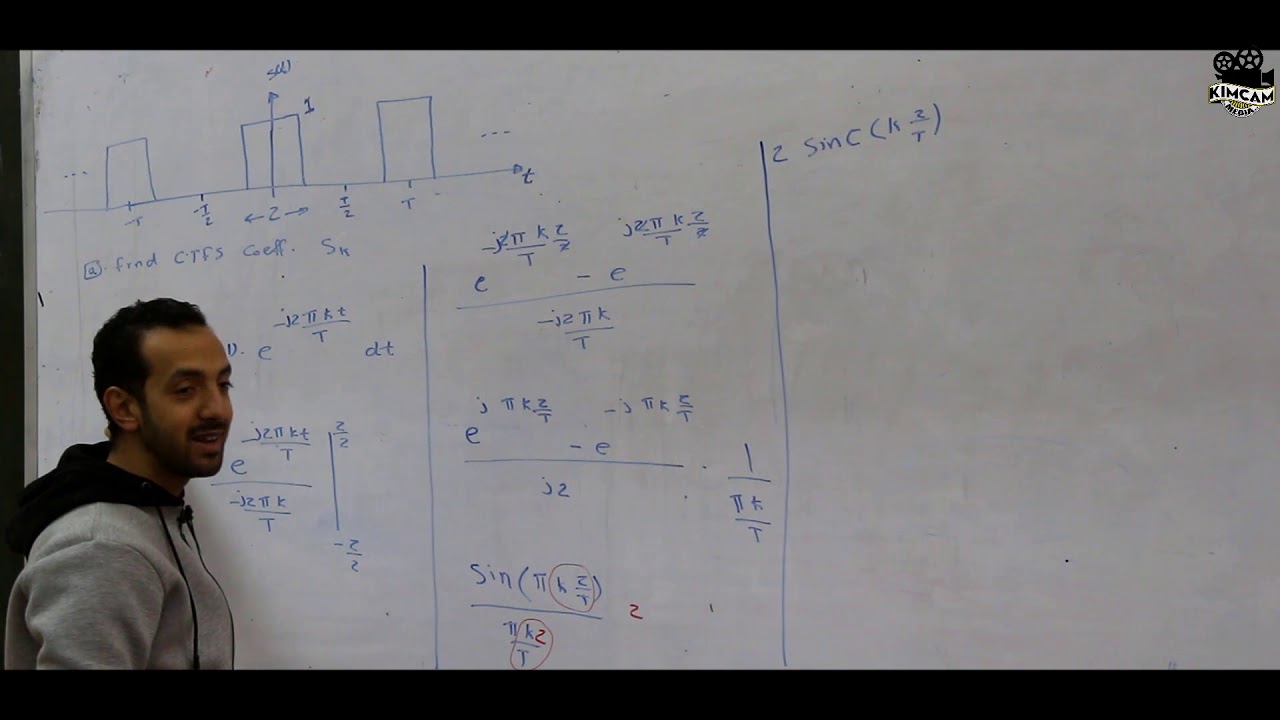 s(t)
1
...
...
t
-T
-T/2
← τ →
T/2
T
a. find CTFS coeff. Sk
1). e^(-j2πkt/T) dt
e^(-j2πkt/T) / (-j2πk/T) | τ/2
-τ/2
e^(-j2πk/T τ/2) - e^(j2πk/T τ/2)
-j2πk/T
e^(jπkτ/T) - e^(-jπkτ/T)
j2
. 1/(πk/T)
Sin(πk τ/T)
πkτ/T
τ
τ sinc(k τ/T)
KIMCAM
MEDIA